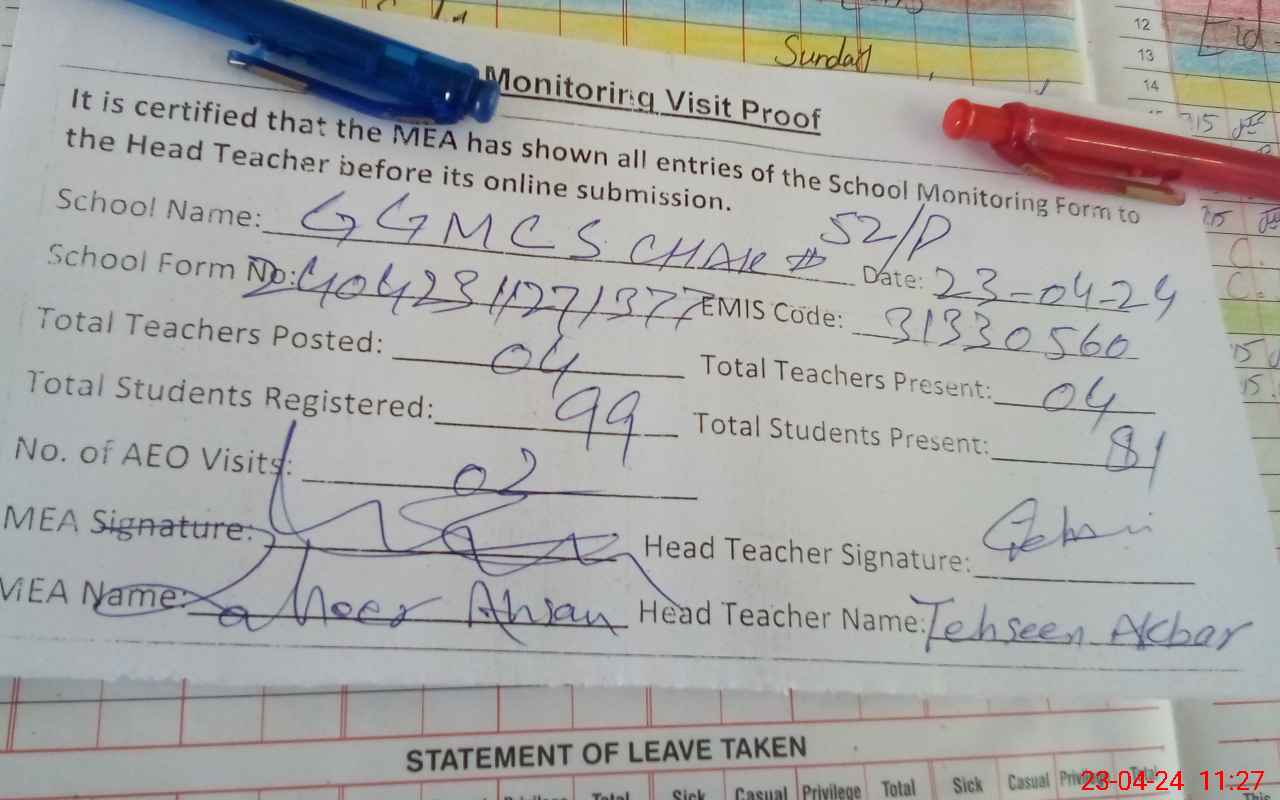 Sunday
12
13
14
Monitoring Visit Proof
It is certified that the MEA has shown all entries of the School Monitoring Form to
the Head Teacher before its online submission.
School Name: GGMCS CHAK # 52/P Date: 23-04-24
School Form No: 24042311271377 EMIS Code: 31330560
Total Teachers Posted: 04 Total Teachers Present: 04
Total Students Registered: 99 Total Students Present: 81
No. of AEO Visits: 02
MEA Signature: Head Teacher Signature:
MEA Name: Meer Ahsan Head Teacher Name: Tehseen Akbar
STATEMENT OF LEAVE TAKEN
Privilege Total Sick Casual Privilege Total Sick Casual Privilege Total
23-04-24 11:27